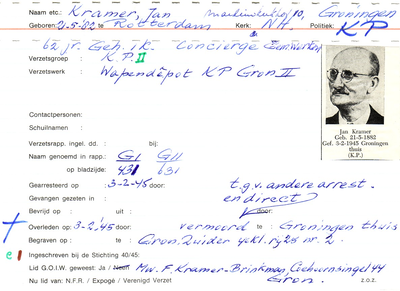 Naam etc.: Kramer, Jan Groningen
Geboren: 21-5-'82 te Rotterdam Kerk: N.H. Politiek: KP
62 jr. Geh. i.k. Conciërge
Verzetsgroep K.P. II
Verzetswerk Wapendépot KP Gron II
Contactpersonen:
Schuilnaam :
Verzetsrapp. ingel. dd. : bij:
Naam genoemd in rapp.: GI GII
op bladzijde: 431 631
Gearresteerd op 3-2-45 door: t.g.v. andere arrest.
Gevangen gezeten in : en direct
Bevrijd op : uit : door:
Overleden op 3-2-'45 door: vermoord te : Groningen thuis
Begraven op : Gron. Zuider
Ingeschreven bij de Stichting 40/45:
Lid G.O.I.W. geweest: Ja / Neen Mw. F. Kramer-Brinkman, Coehoornsingel 44
Nu lid van: N.F.R. / Expogé / Verenigd Verzet Gron. z.o.z.
Jan Kramer
Geb. 21-5-1882
Gef. 3-2-1945 Groningen
thuis
(K.P.)